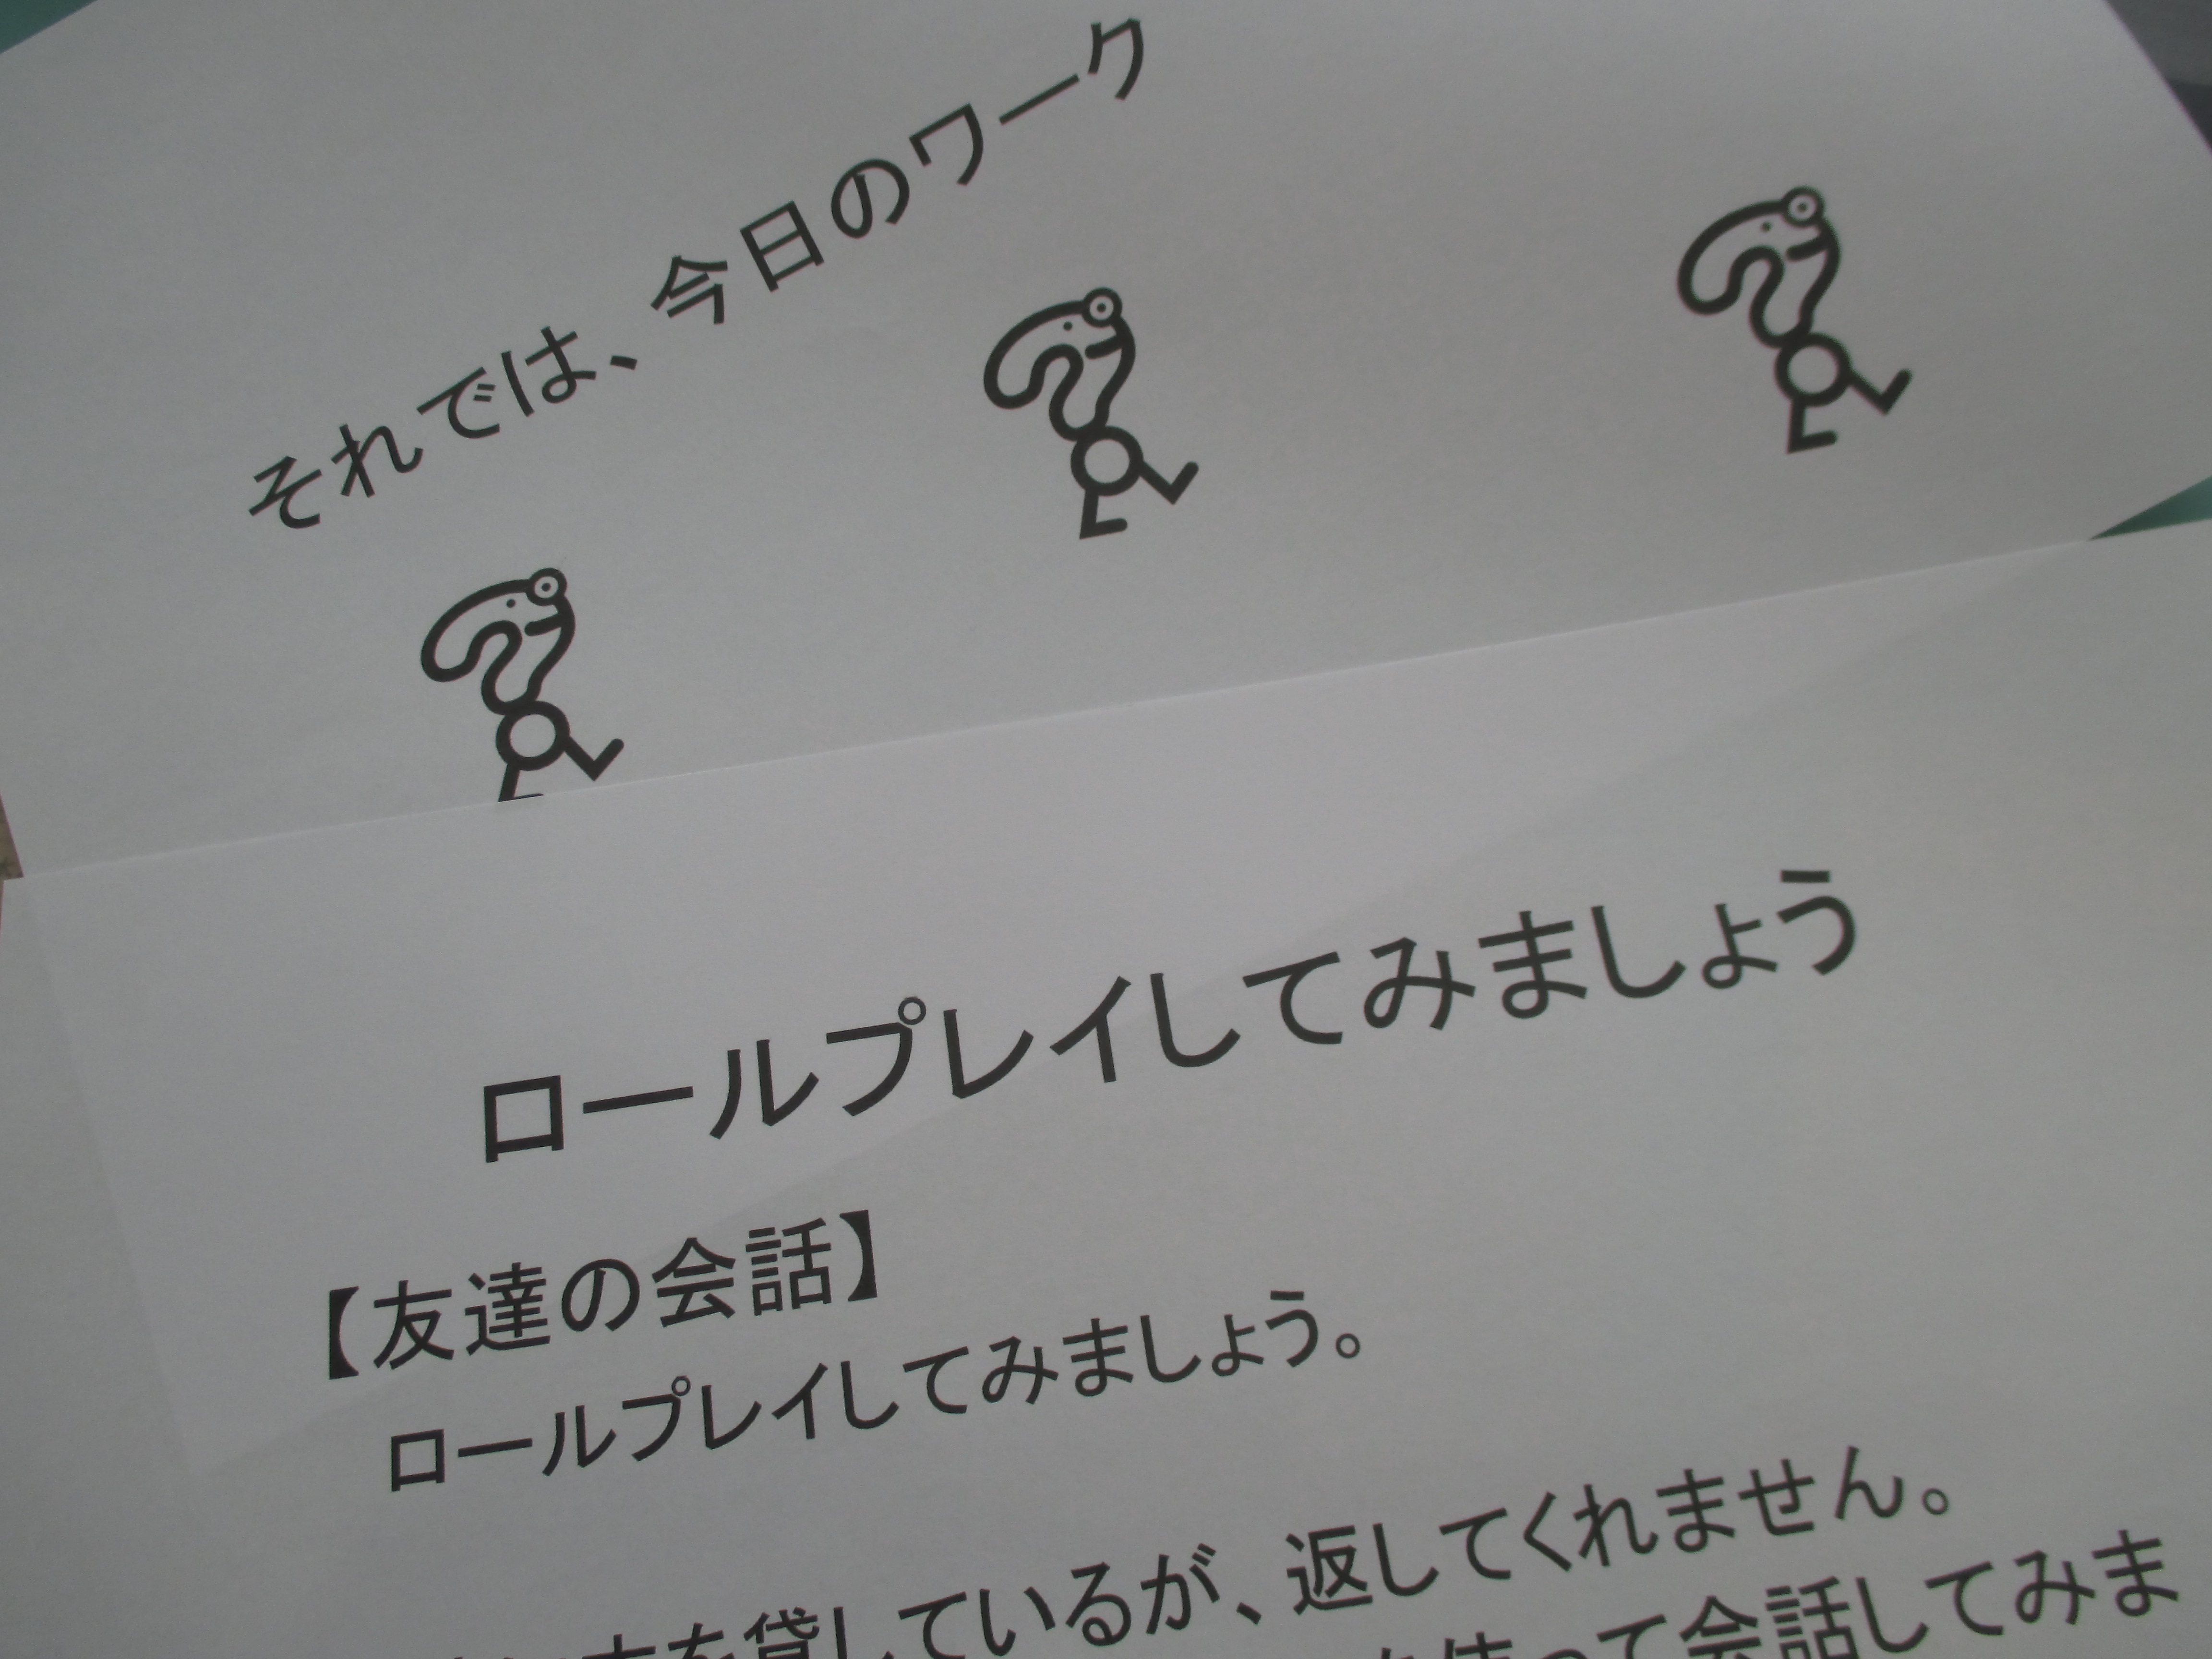 それでは、今日のワーク
ロールプレイしてみましょう
【友達の会話】
ロールプレイしてみましょう。
を貸しているが、返してくれません。
使って会話してみま